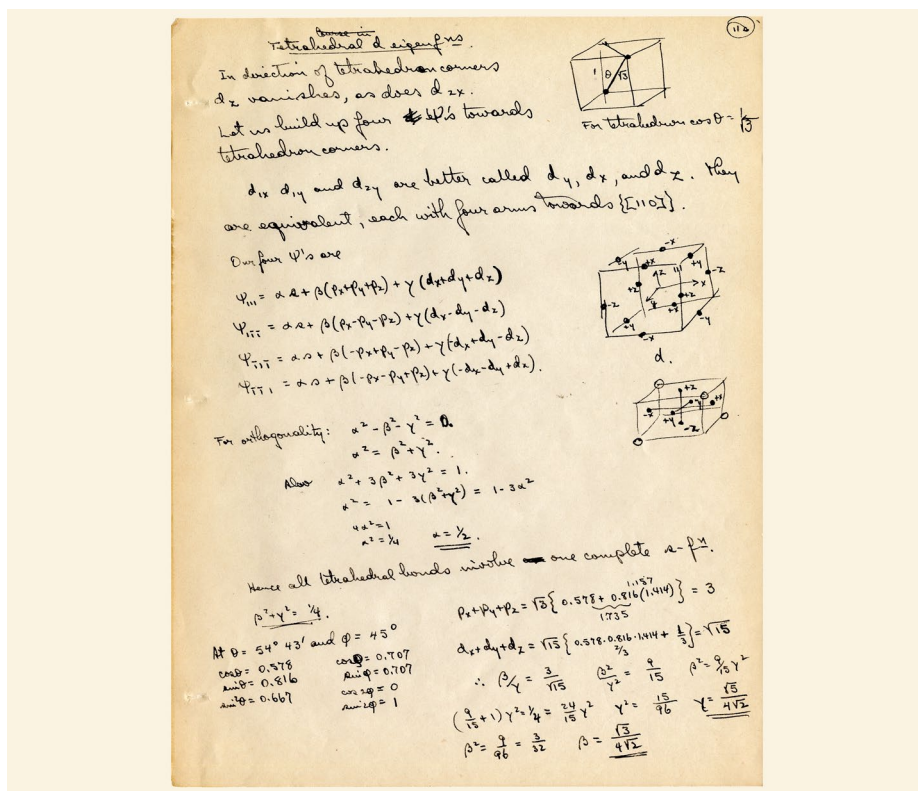 112
Tetrahedral d eigenfns.
In direction of tetrahedron corners
dz vanishes, as does d2x.
Let us build up four Ψ's towards
tetrahedron corners.
1 θ √3
For tetrahedron cos θ = 1/√3
d1x d1y and d2y are better called dy, dx, and dz. They
are equivalent, each with four arms towards {[110]}.
Our four Ψ's are
Ψ111 = αs + β(px+py+pz) + γ(dx+dy+dz)
Ψ11̄1̄ = αs + β(px-py-pz) + γ(dx-dy-dz)
Ψ1̄11̄ = αs + β(-px+py-pz) + γ(-dx+dy-dz)
Ψ1̄1̄1 = αs + β(-px-py+pz) + γ(-dx-dy+dz).
d.
For orthogonality: α² - β² - γ² = 0.
α² = β² + γ².
Also α² + 3β² + 3γ² = 1.
α² = 1 - 3(β²+γ²) = 1 - 3α²
4α² = 1
α² = 1/4 α = 1/2.
Hence all tetrahedral bonds involve one complete s-fn.
β²+γ² = 1/4.
At θ = 54° 43' and φ = 45°
cosθ = 0.578 cosφ = 0.707
sinθ = 0.816 sinφ = 0.707
sin²θ = 0.667 cos2φ = 0
sin2φ = 1
px+py+pz = √3{0.578 + 0.816(1.414)} = 3
1.157
1.735
dx+dy+dz = √15{0.578·0.816·1.414 + 1/3} = √15
2/3
∴ β/γ = 3/√15 β²/γ² = 9/15 β² = 9/15 γ²
(9/15 + 1)γ² = 1/4 = 24/15 γ² γ² = 15/96 γ = √5/4√2
β² = 9/96 = 3/32 β = √3/4√2